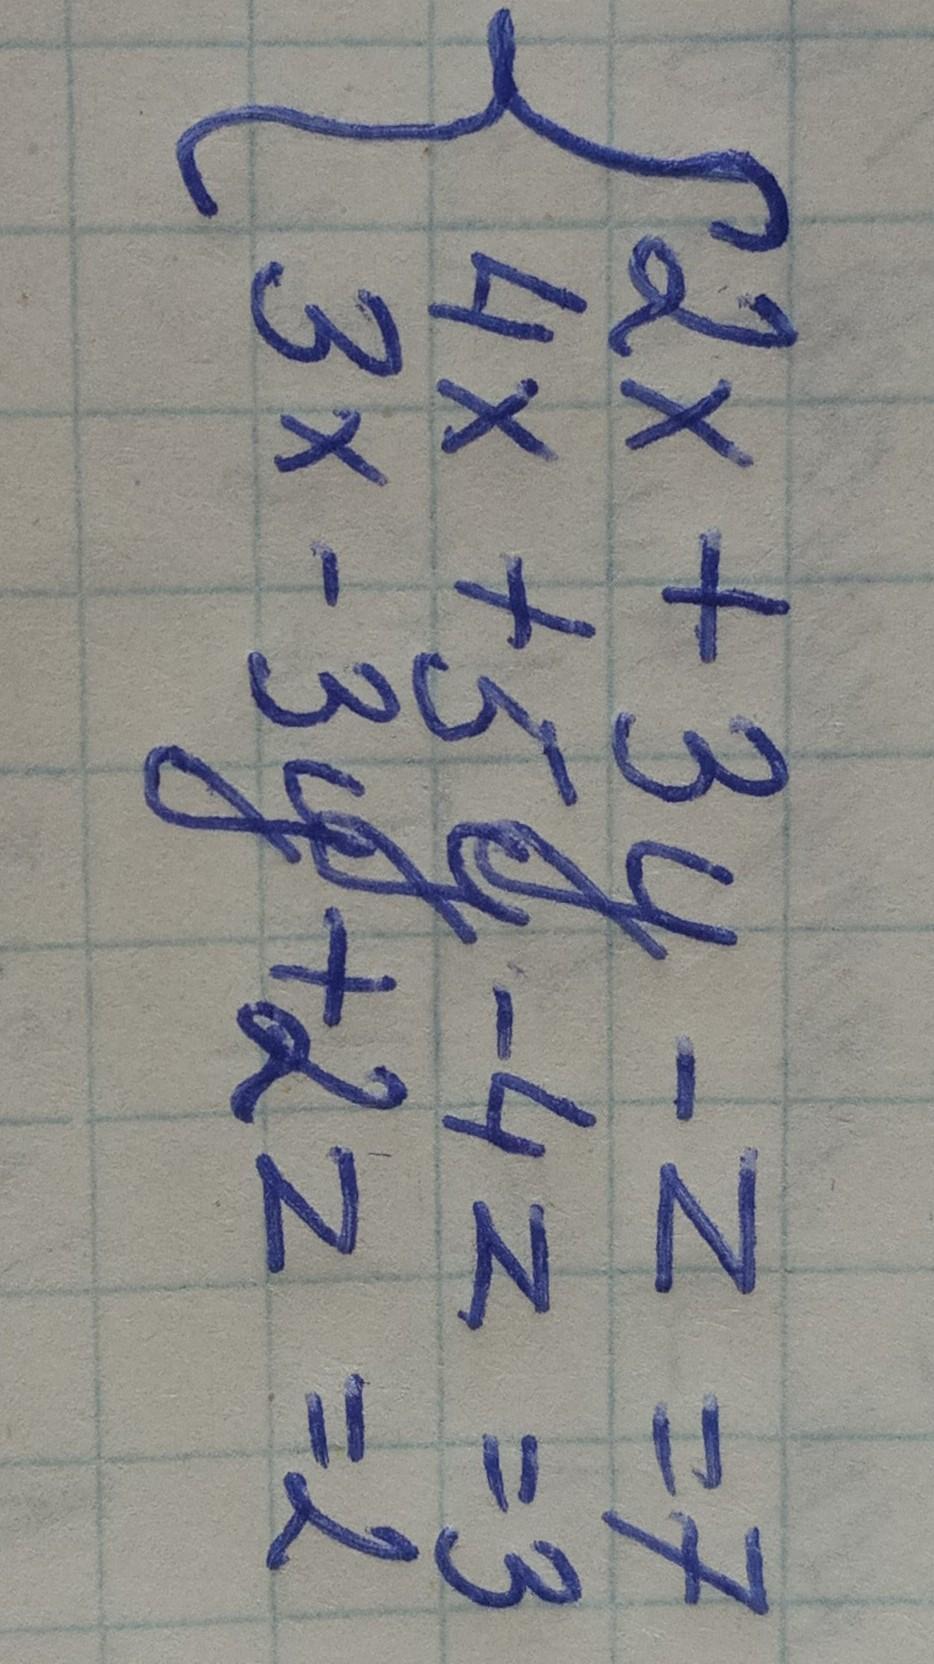 2x + 3y - z = 7
4x + 5y - 4z = 3
3x - 3y + 2z = 2